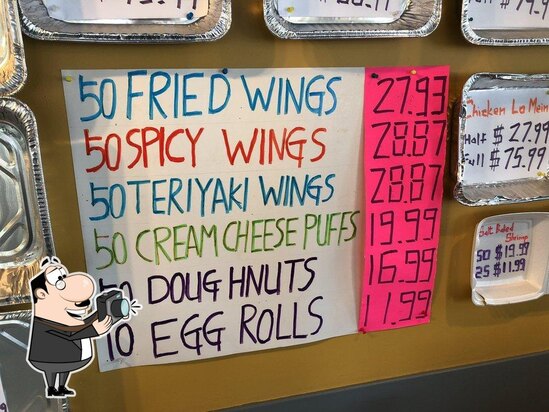 50 FRIED WINGS 27.93
50 SPICY WINGS 28.87
50 TERIYAKI WINGS 28.87
50 CREAM CHEESE PUFFS 19.99
50 DOUGHNUTS 16.99
10 EGG ROLLS 11.99
Chicken Lo Mein
Half $27.99
Full $75.99
Salt Baked
Shrimp
50 $19.99
25 $11.99